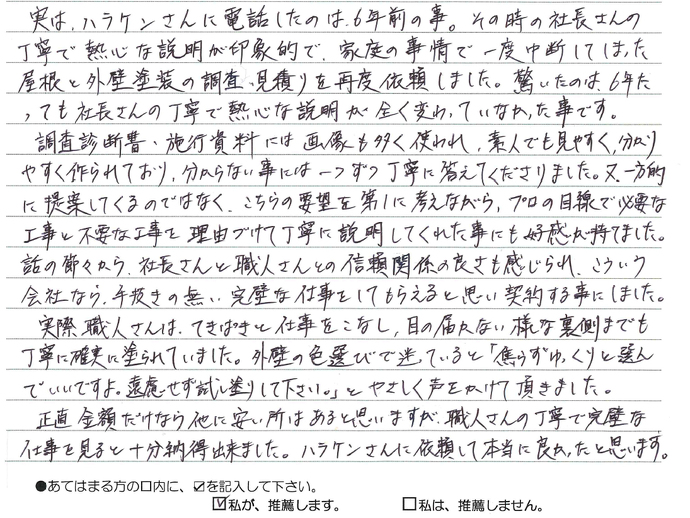 実は、ハラケンさんに電話したのは、6年前の事。その時の社長さんの
丁寧で熱心な説明が印象的で、家庭の事情で一度中断してしまった
屋根と外壁塗装の調査、見積りを再度依頼しました。驚いたのは、6年た
っても社長さんの丁寧で熱心な説明が全く変わっていなかった事です。
調査診断書・施行資料には画像も多く使われ、素人でも見やすく、分かり
やすく作られており、分からない事には一つずつ丁寧に答えてくださりました。又、一方的
に提案してくるのではなく、こちらの要望を第1に考えながら、プロの目線で必要な
工事と不要な工事を理由づけて丁寧に説明してくれた事にも好感が持てました。
話の節々から、社長さんと職人さんとの信頼関係の良さも感じられ、こういう
会社なら、手抜きの無い完璧な仕事をしてもらえると思い契約する事にしました。
実際、職人さんは、てきぱきと仕事をこなし、目の届かない様な裏側までも
丁寧に確実に塗られていました。外壁の色選びで迷っていると「焦らずゆっくりと選ん
でいいですよ。遠慮せず試し塗りして下さい。」とやさしく声をかけて頂きました。
正直、金額だけなら他に安い所はあると思いますが、職人さんの丁寧で完璧な
仕事を見ると十分納得出来ました。ハラケンさんに依頼して本当に良かったと思います。
●あてはまる方の口内に、☑を記入して下さい。
☑私が、推薦します。 □私は、推薦しません。